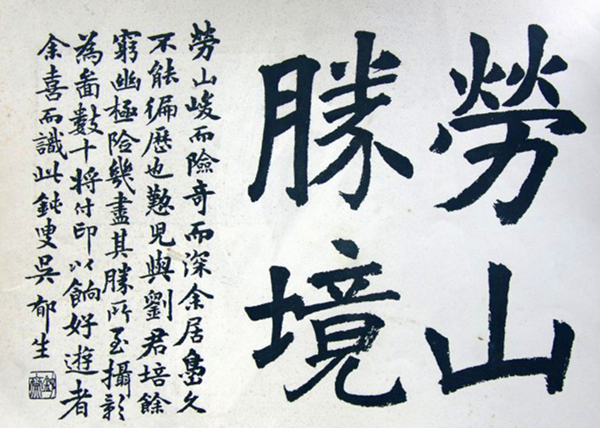 勞山
勝境
勞山峻而險奇而深余居島久
不能徧歷也懃兒與劉君培餘
窮幽極險幾盡其勝所至攝影
為啚數十將付印以餉好遊者
余喜而識此鈍叟吳郁生